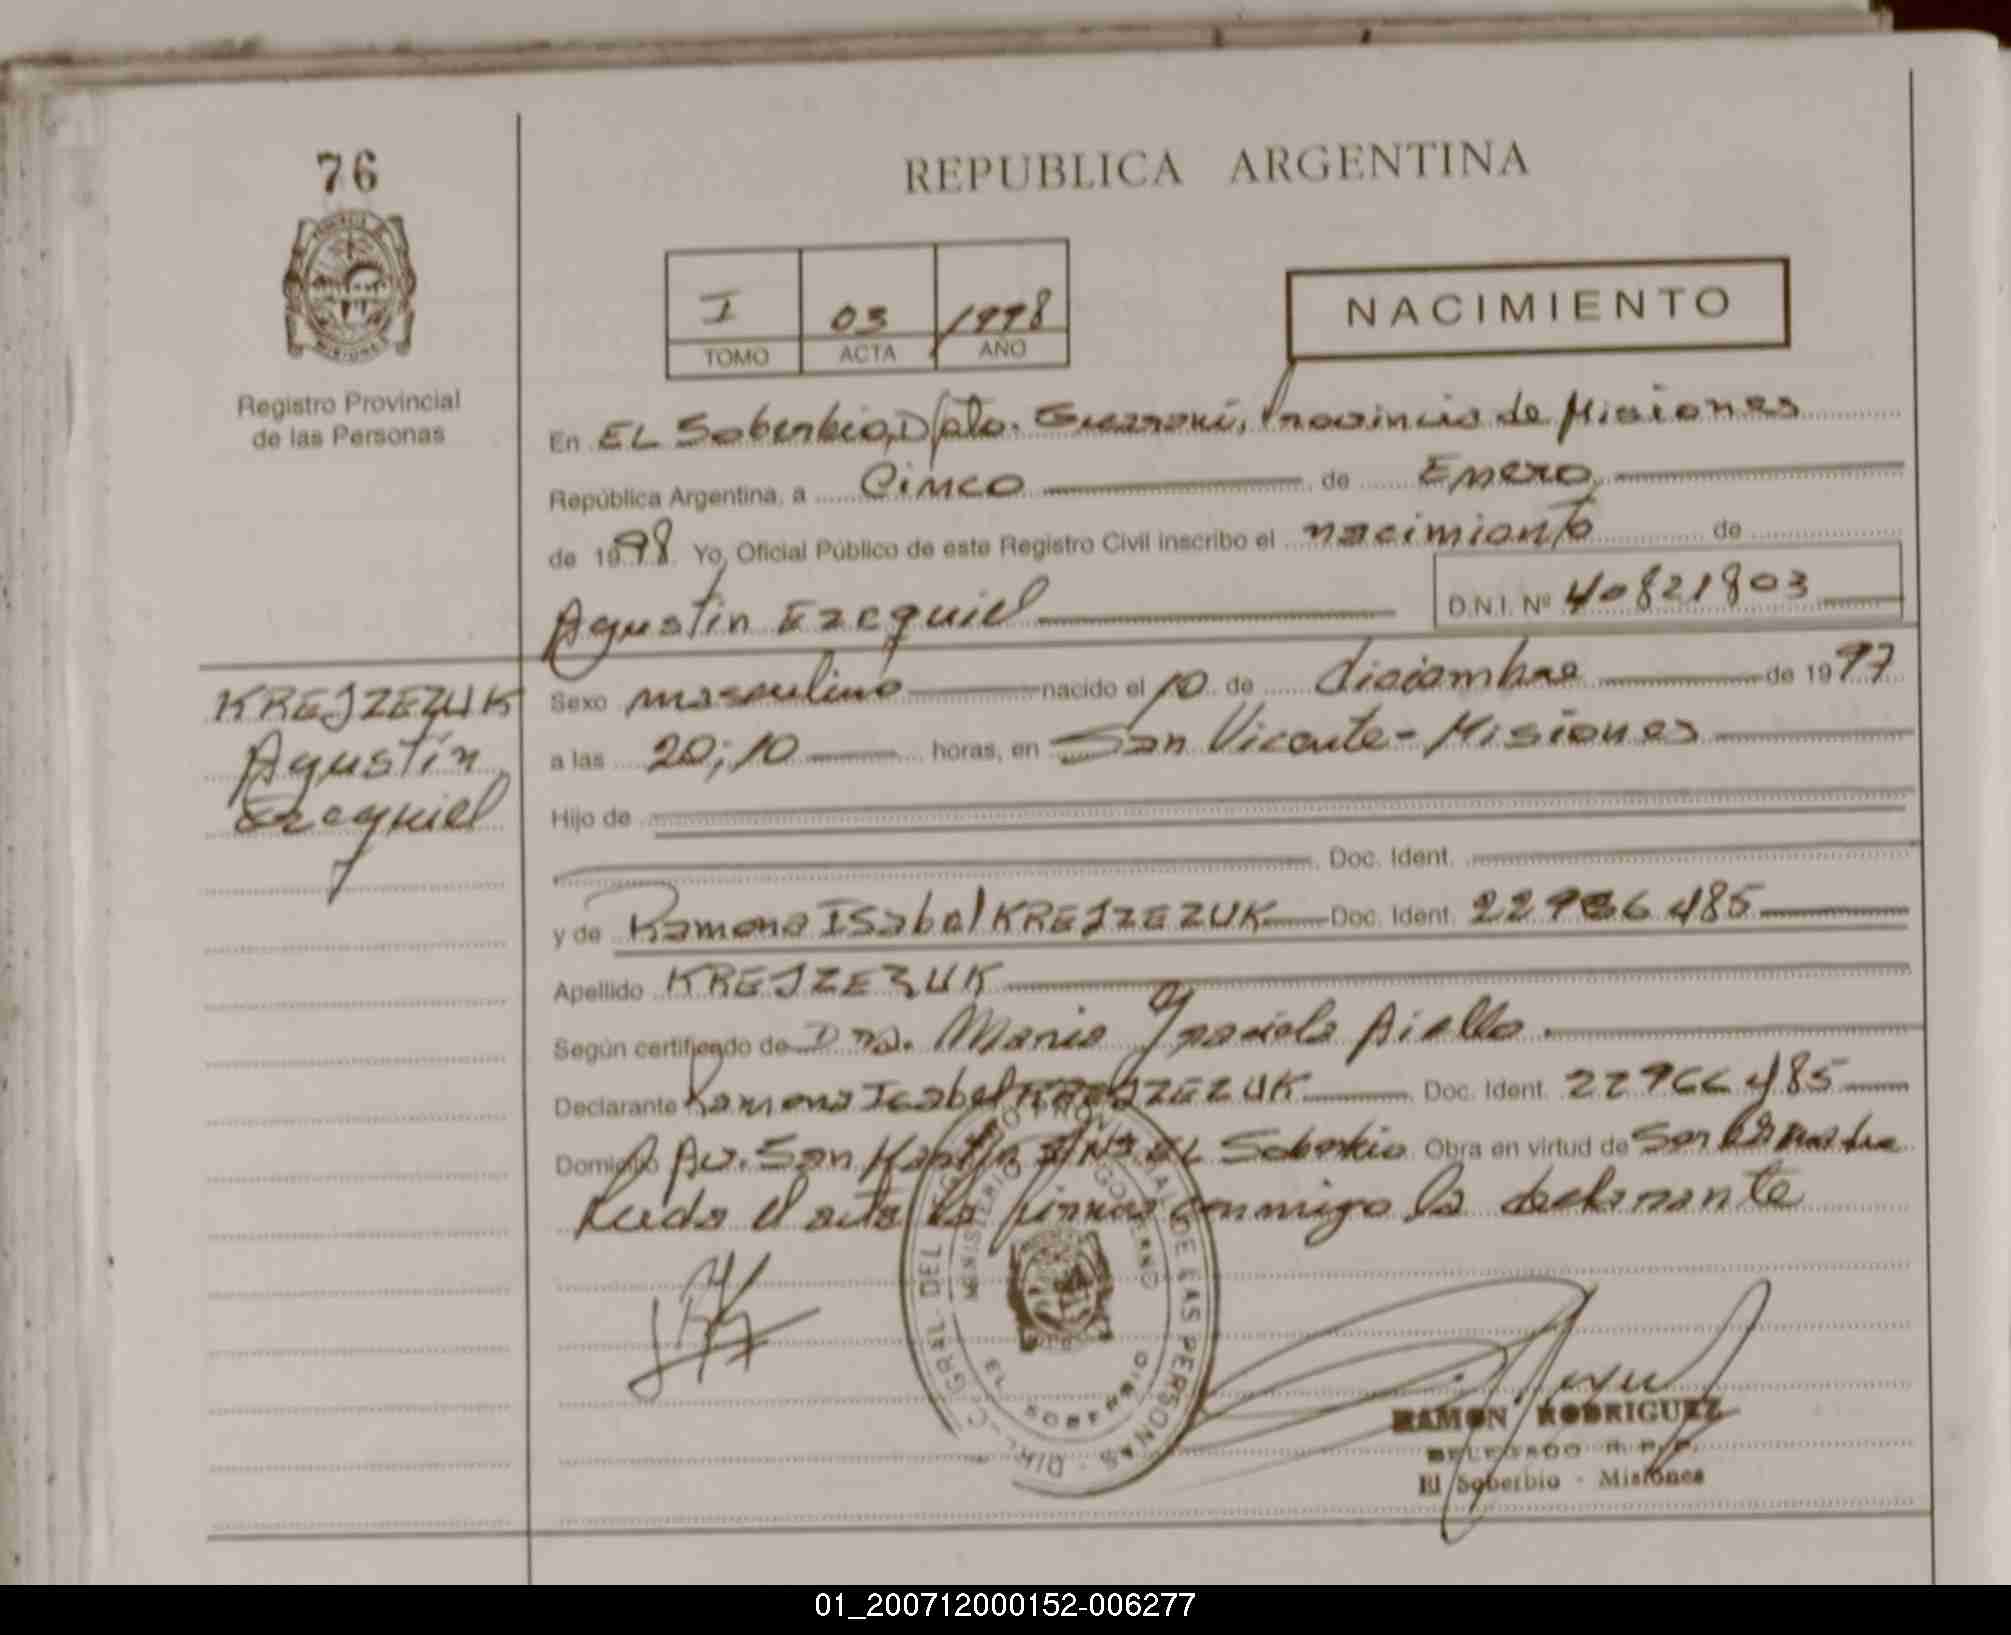 76
REPUBLICA ARGENTINA
I 03 1998
TOMO ACTA AÑO
NACIMIENTO
Registro Provincial
de las Personas
En EL Soberbio, Dpto. Guaraní, Provincia de Misiones
República Argentina, a Cinco de Enero
de 1998 Yo, Oficial Público de este Registro Civil inscribo el nacimiento de
Agustín Ezequiel D.N.I. Nº 40821803
KREJZEZUK
Agustín
Ezequiel
Sexo masculino nacido el 10 de diciembre de 1997
a las 20;10 horas, en San Vicente - Misiones
Hijo de
Doc. Ident.
y de Ramona ISabel KREJZEZUK Doc. Ident. 22966485
Apellido KREJZEZUK
Según certificado de Dra. Maria Graciela Aiello.
Declarante Ramona Isabel KREJZEZUK Doc. Ident. 22966485
Domicilio Av. San Martín S/Nº EL Soberbio Obra en virtud de Ser la Madre
Leida el acta la firma conmigo la declarante
DIR. GRAL. DEL REGISTRO PROVINCIAL DE LAS PERSONAS
MINISTERIO DE GOBIERNO
EL SOBERBIO
RAMON RODRIGUEZ
DELEGADO R. P. P.
El Soberbio - Misiones
01_200712000152-006277